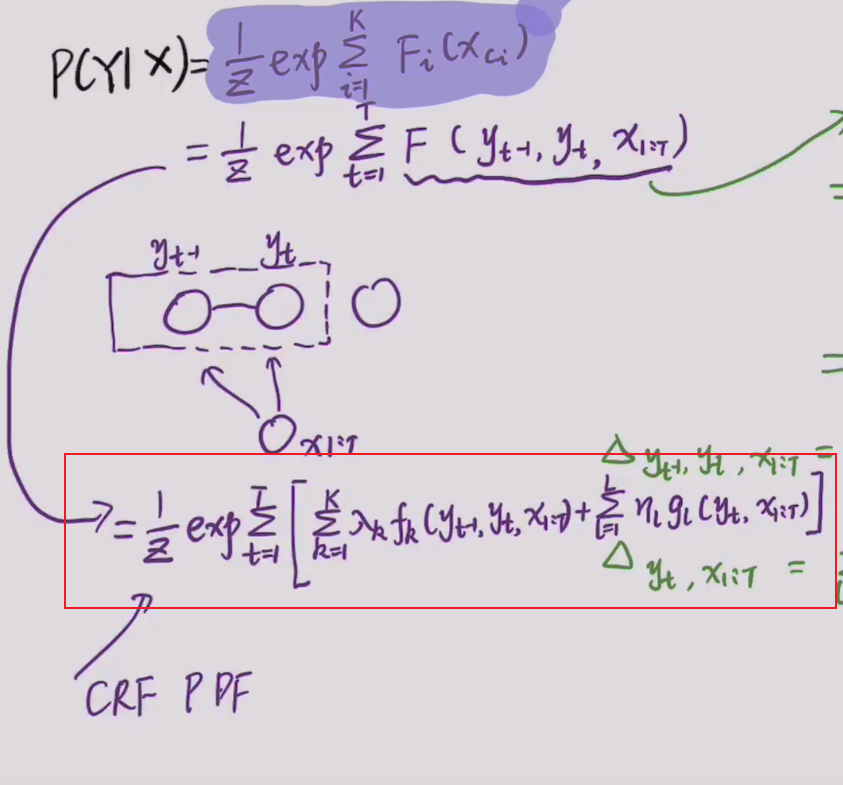 P(Y|X) = 1/Z exp Σ_{i=1}^{K} F_i(x_{ci})
= 1/Z exp Σ_{t=1}^{T} F(y_{t-1}, y_t, x_{1:T})
=
y_{t-1} y_t
=
x_{1:T}
Δ y_{t-1}, y_t, x_{1:T} =
= 1/Z exp Σ_{t=1}^{T} [ Σ_{k=1}^{K} λ_k f_k(y_{t-1}, y_t, x_{1:T}) + Σ_{l=1}^{L} η_l g_l(y_t, x_{1:T}) ]
Δ y_t, x_{1:T} =
CRF PDF